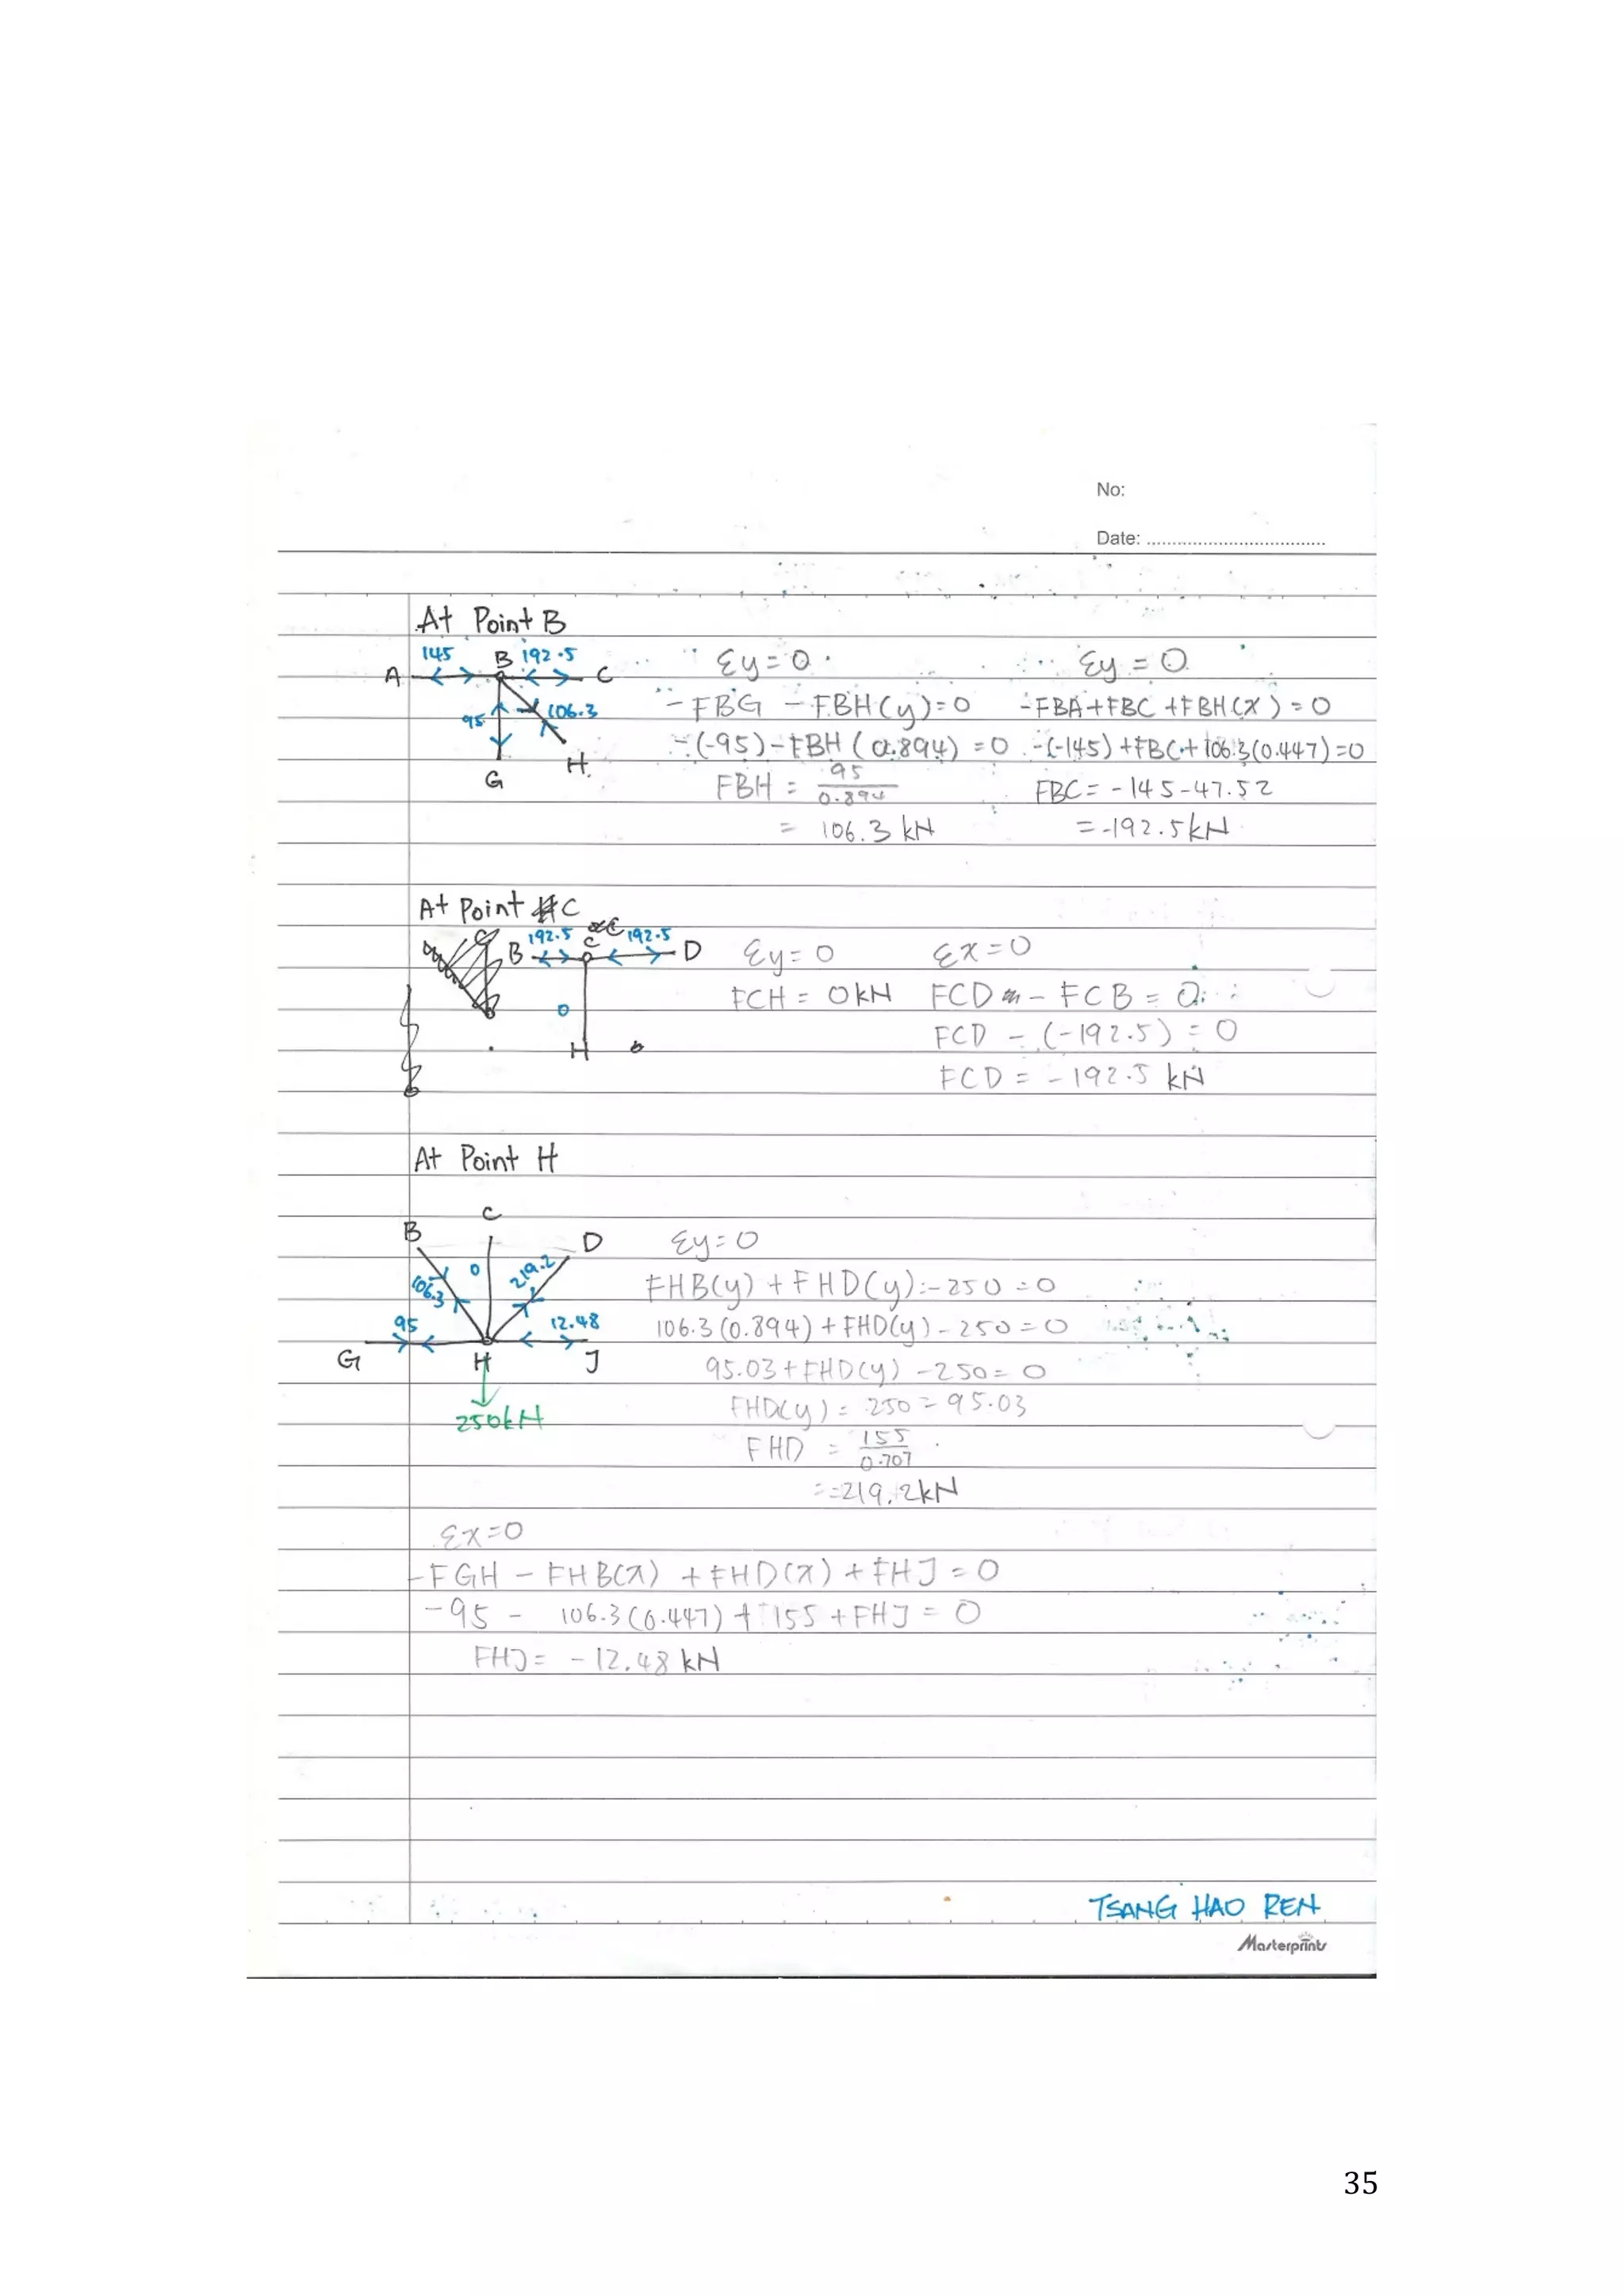 No:
Date: ................................
At Point B
145 B 192.5
A C
95 106.3
G H
Σy = 0
- FBG - FBH(y) = 0
-(-95) - FBH (0.894) = 0
FBH = 95
0.894
= 106.3 kN
Σy = 0
-FBA + FBC + FBH(x) = 0
-(-145) + FBC + 106.3(0.447) = 0
FBC = -145 - 47.52
= -192.5kN
At Point C
B 192.5 C 192.5 D
0
H
Σy = 0
FCH = 0kN
Σx = 0
FCD - FCB = 0
FCD - (-192.5) = 0
FCD = -192.5 kN
At Point H
C
B D
106.3 0 219.2
95 12.48
G H J
250kN
Σy = 0
FHB(y) + FHD(y) - 250 = 0
106.3 (0.894) + FHD(y) - 250 = 0
95.03 + FHD(y) - 250 = 0
FHD(y) = 250 - 95.03
FHD = 155
0.707
= 219.2kN
Σx = 0
-FGH - FHB(x) + FHD(x) + FHJ = 0
-95 - 106.3(0.447) + 155 + FHJ = 0
FHJ = -12.48 kN
TSANG HAO REN
Masterprints
35